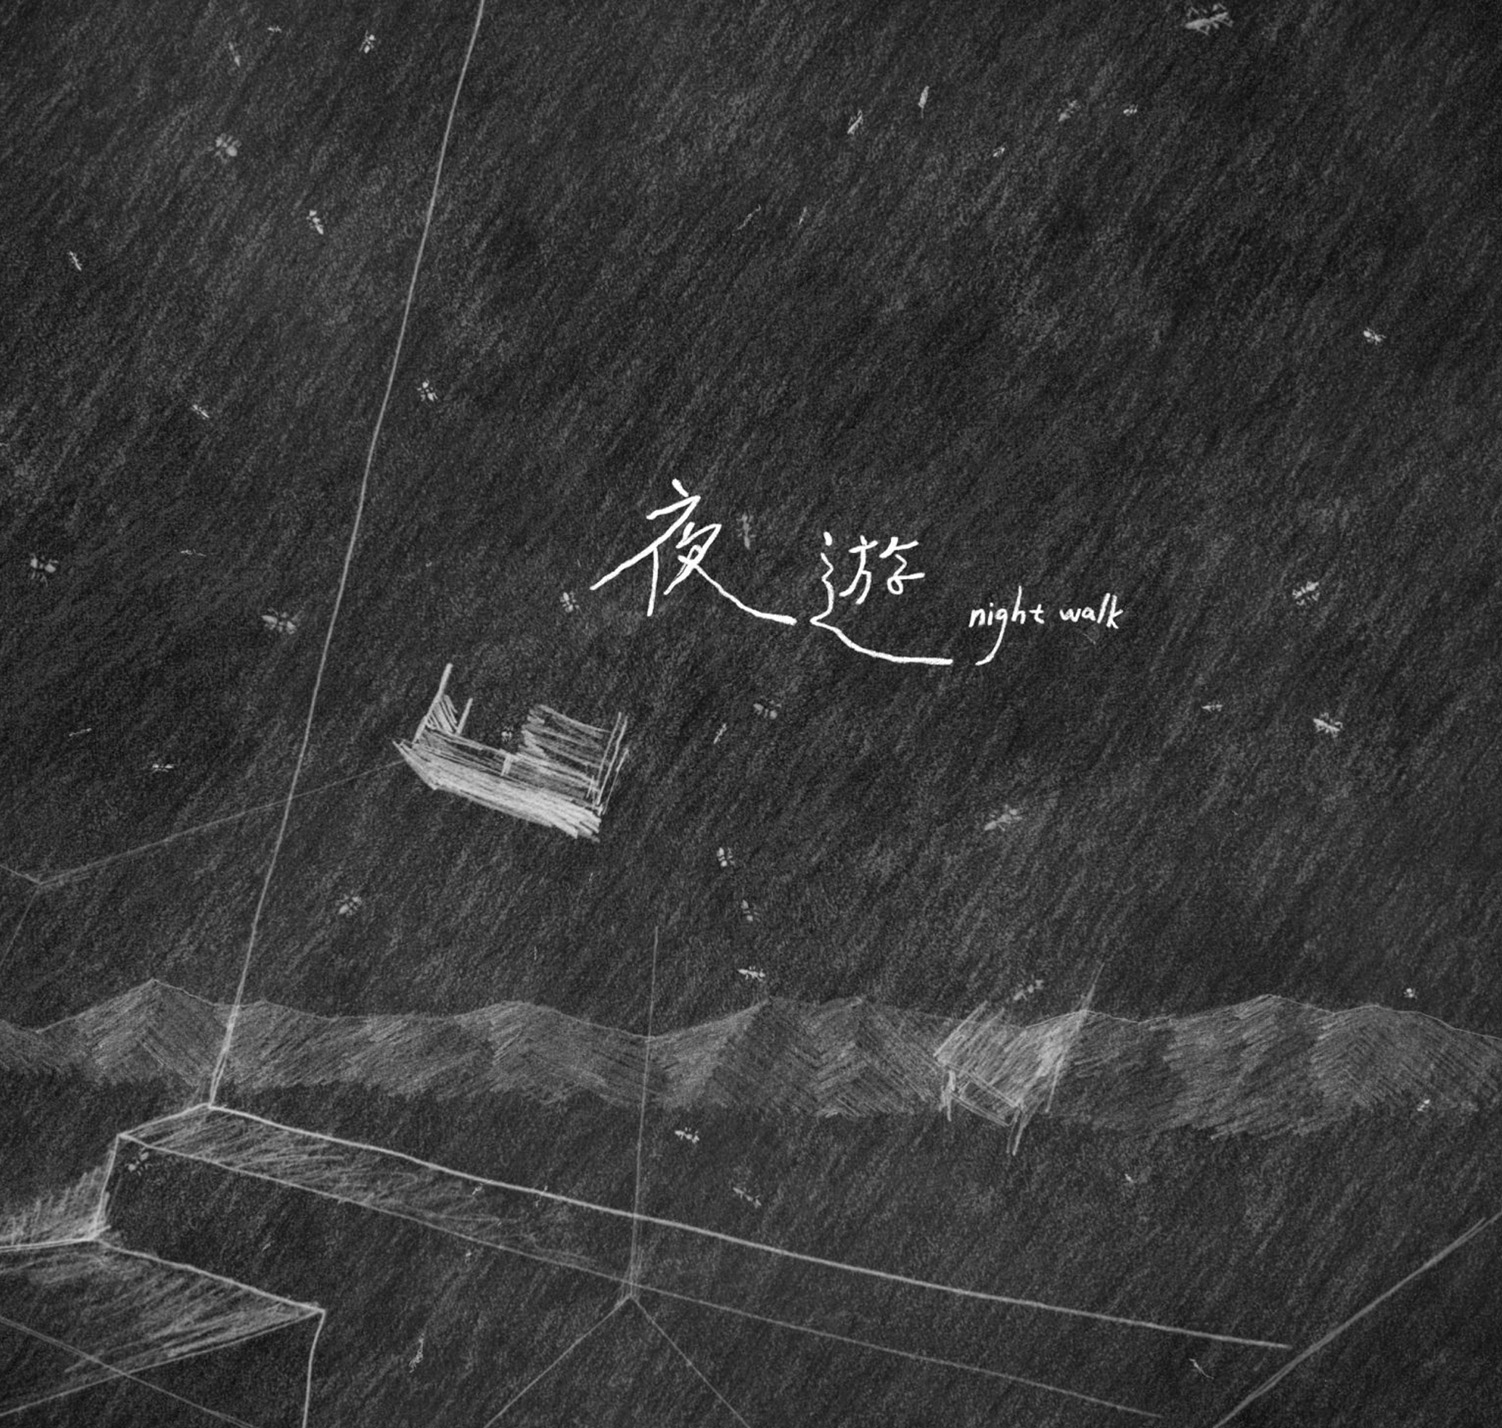 夜遊
night walk